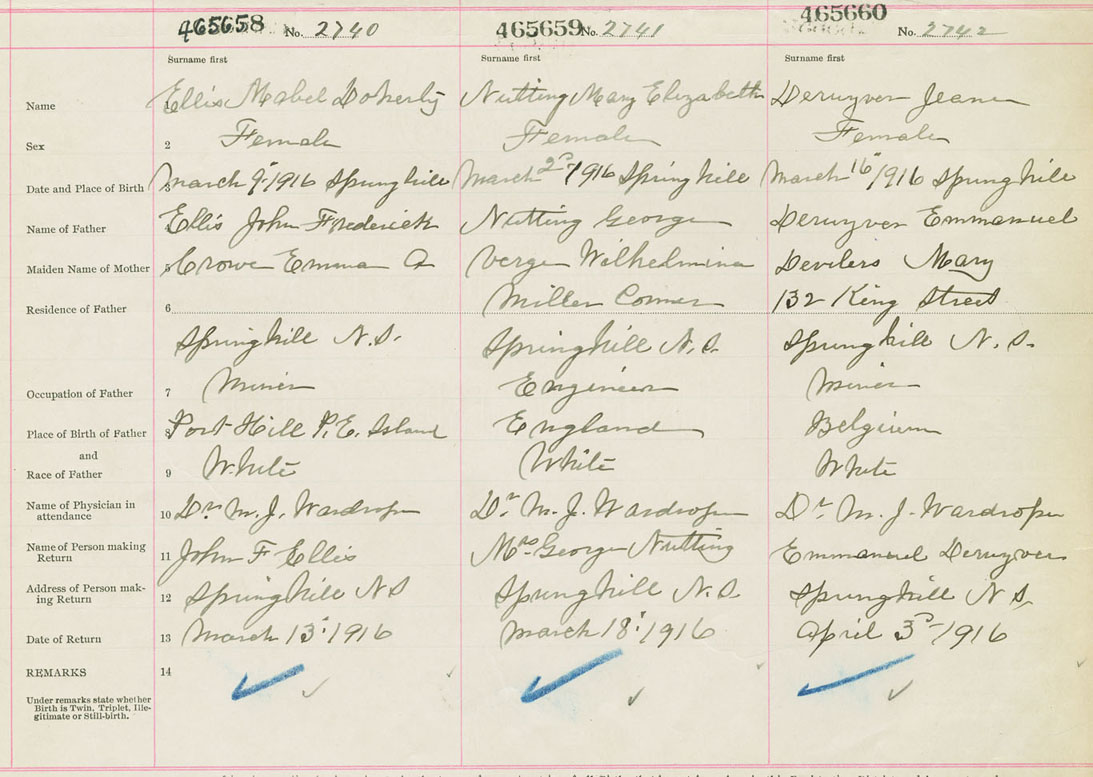 465658 No. 2740 465659 No. 2741 465660 No. 2742
Surname first Surname first Surname first
Name 1 Ellis Mabel Doherty Nutting Mary Elizabeth Deruyver Jeane
Sex 2 Female Female Female
Date and Place of Birth March 9" 1916 Springhill March 2d 1916 Springhill March 16" 1916 Springhill
Name of Father Ellis John Frederick Nutting George Deruyver Emmanuel
Maiden Name of Mother 5 Crowe Emma A Verge Wilhelmina Devilers Mary
Residence of Father 6 Miller Corner 132 King Street
Springhill N.S. Springhill N.S. Springhill N.S.
Occupation of Father 7 Miner Engineer Miner
Place of Birth of Father 8 Port Hill P.E. Island England Belgium
and
Race of Father 9 White White White
Name of Physician in
attendance 10 Dr. M. J. Wardrope Dr. M. J. Wardrope Dr. M. J. Wardrope
Name of Person making
Return 11 John F Ellis Mrs George Nutting Emmanuel Deruyver
Address of Person mak-
ing Return 12 Springhill N S Springhill N.S. Springhill N S.
Date of Return 13 March 13" 1916 March 18" 1916 April 3d 1916
REMARKS 14
Under remarks state whether
Birth is Twin, Triplet, Ille-
gitimate or Still-birth.